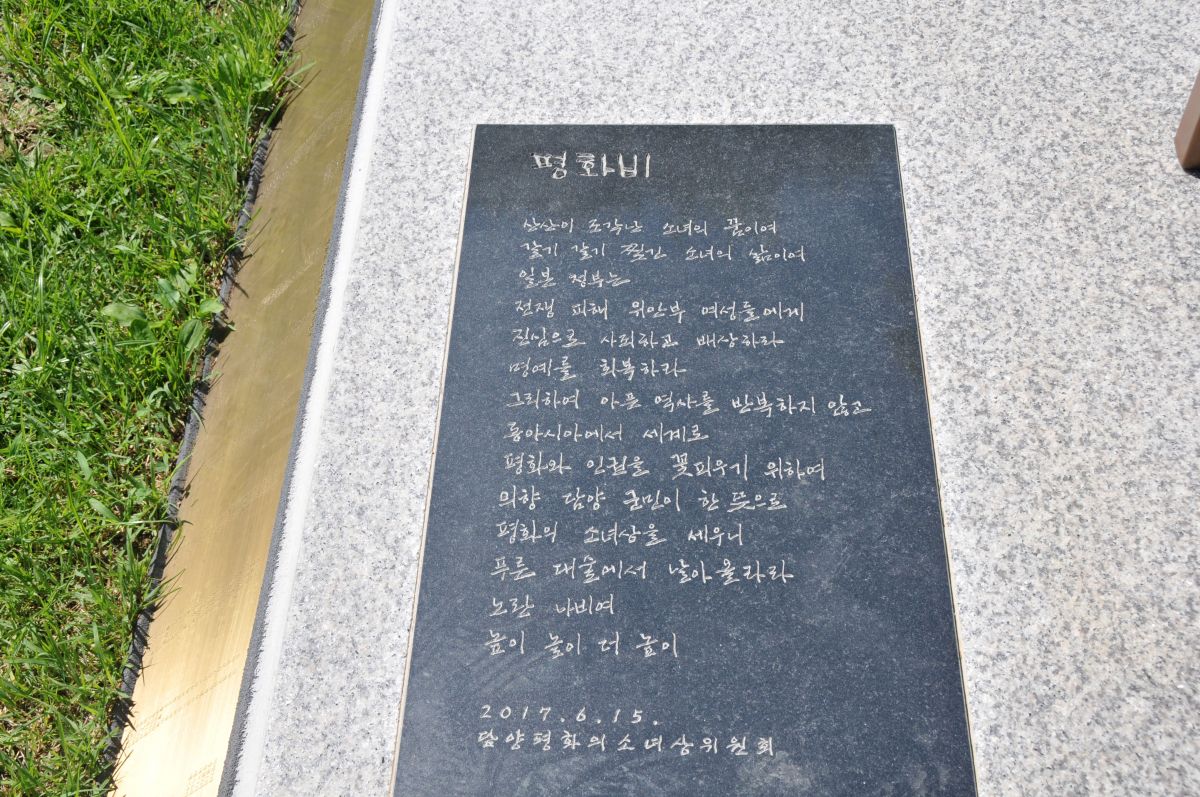 평화비
산산이 조각난 소녀의 꿈이여
갈기 갈기 찢긴 소녀의 삶이여
일본 정부는
전쟁 피해 위안부 여성들에게
진심으로 사죄하고 배상하라
명예를 회복하라
그리하여 아픈 역사를 반복하지 않고
동아시아에서 세계로
평화와 인권을 꽃피우기 위하여
의향 담양 군민이 한 뜻으로
평화의 소녀상을 세우니
푸른 대숲에서 날아올라라
노란 나비여
높이 높이 더 높이
2017.6.15.
담양평화의소녀상위원회